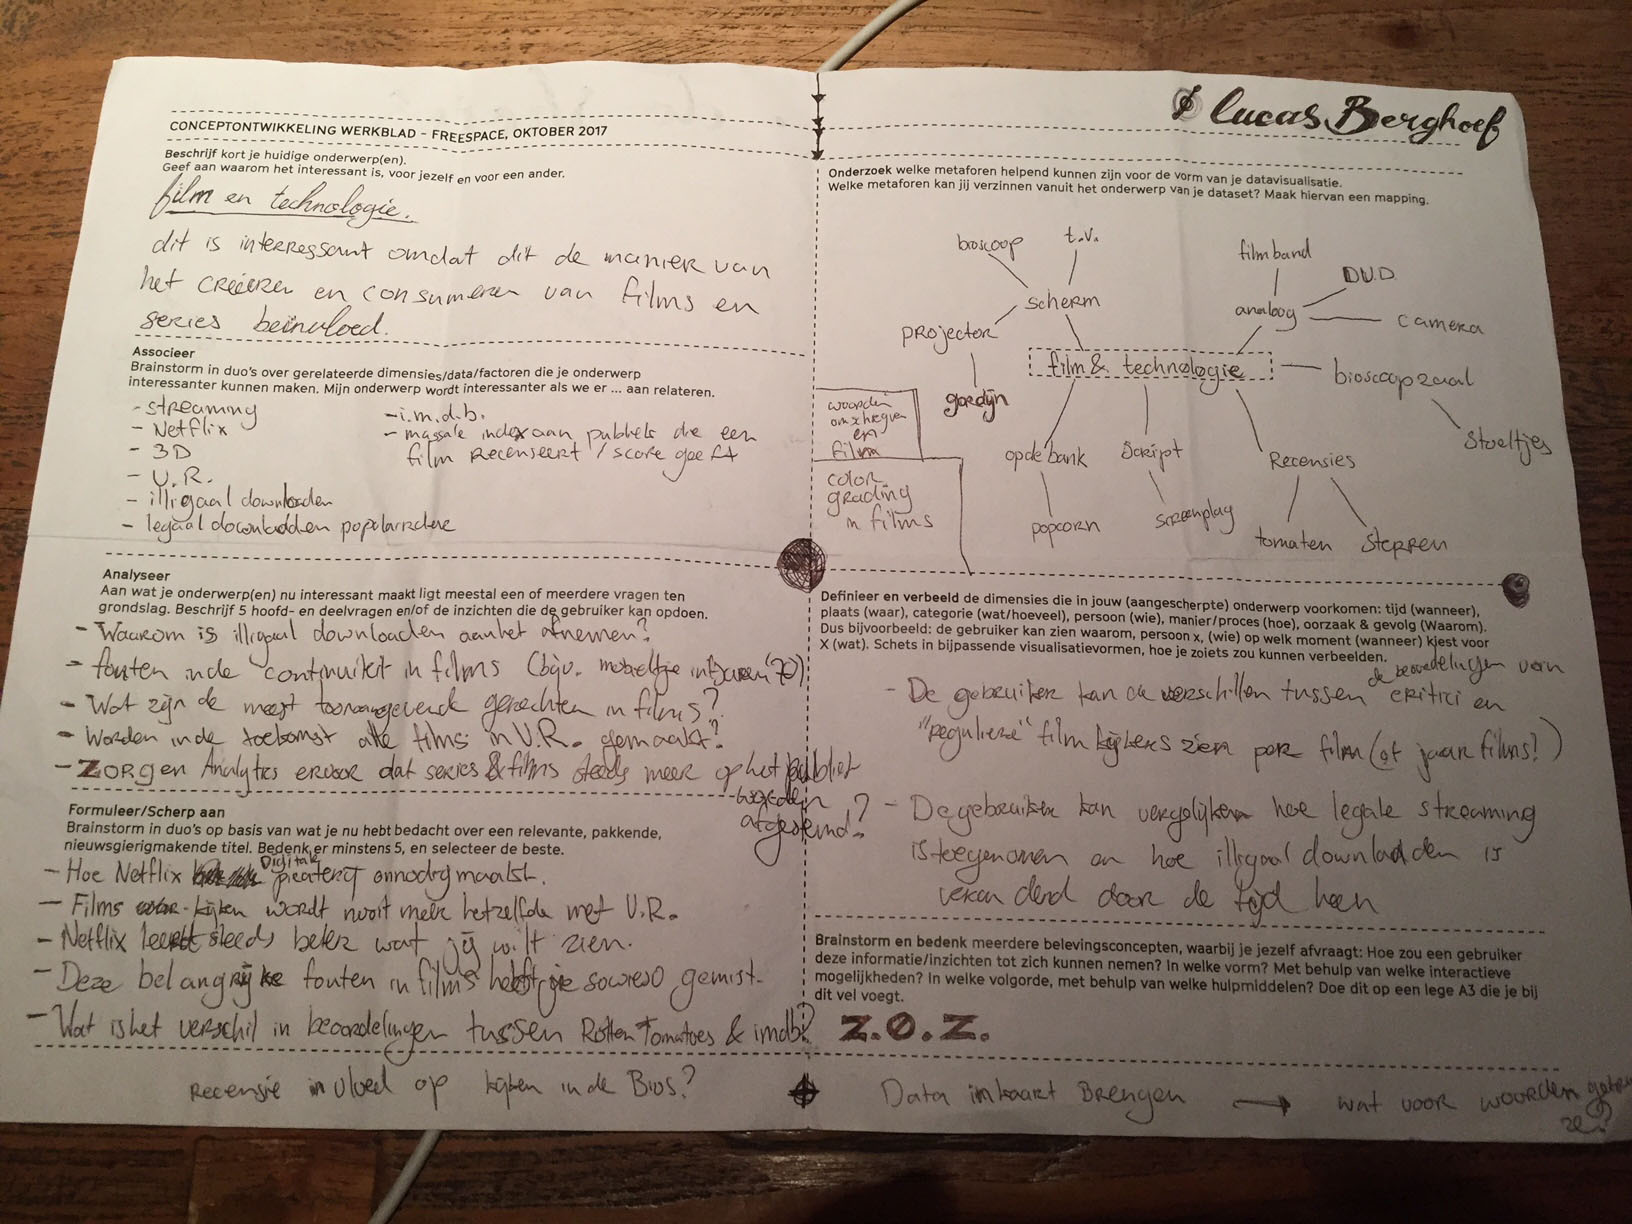 Lucas Berghoef
CONCEPTONTWIKKELING WERKBLAD - FREESPACE, OKTOBER 2017
Beschrijf kort je huidige onderwerp(en).
Geef aan waarom het interessant is, voor jezelf en voor een ander.
film en technologie.
dit is interressant omdat dit de manier van
het creëeren en consumeren van films en
series beïnvloed.
Associeer
Brainstorm in duo's over gerelateerde dimensies/data/factoren die je onderwerp
interessanter kunnen maken. Mijn onderwerp wordt interessanter als we er ... aan relateren.
- streaming
- Netflix
- 3D
- V.R.
- illigaal downloaden
- legaal downloadden
- i.m.d.b.
- massale index aan publiek die een
film recenseert / score geeft
Analyseer
Aan wat je onderwerp(en) nu interessant maakt ligt meestal een of meerdere vragen ten
grondslag. Beschrijf 5 hoofd- en deelvragen en/of de inzichten die de gebruiker kan opdoen.
- Waarom is illigaal downloaden aan het afnemen?
- fouten in de continuïteit in films (bijv. mobieltje in jaren '70)
- Wat zijn de meest toonaangevende gerechten in films?
- Worden in de toekomst alle films in V.R. gemaakt?
- Zorgen Analytics ervoor dat series & films steeds meer op het publiek
worden
afgestemd?
Formuleer/Scherp aan
Brainstorm in duo's op basis van wat je nu hebt bedacht over een relevante, pakkende,
nieuwsgierigmakende titel. Bedenk er minstens 5, en selecteer de beste.
- Hoe Netflix Digitale piraterij onnodig maakt.
- Films kijken wordt nooit meer hetzelfde met V.R.
- Netflix steeds beter wat jij wilt zien.
- Deze belangrijke fouten in films heb je sowieso gemist.
- Wat is het verschil in beoordelingen tussen Rotten Tomatoes & imdb?
recensie invloed op kijken in de Bios?
Onderzoek welke metaforen helpend kunnen zijn voor de vorm van je datavisualisatie.
Welke metaforen kan jij verzinnen vanuit het onderwerp van je dataset? Maak hiervan een mapping.
bioscoop
t.v.
scherm
projector
gordijn
film & technologie
filmband
D.V.D.
analoog
camera
bioscoopzaal
stoeltjes
op de bank
popcorn
Script
screenplay
Recensies
tomaten
sterren
woorden
omschrijven
en
film
color
grading
in films
Definieer en verbeeld de dimensies die in jouw (aangescherpte) onderwerp voorkomen: tijd (wanneer),
plaats (waar), categorie (wat/hoeveel), persoon (wie), manier/proces (hoe), oorzaak & gevolg (Waarom).
Dus bijvoorbeeld: de gebruiker kan zien waarom, persoon x, (wie) op welk moment (wanneer) kiest voor
X (wat). Schets in bijpassende visualisatievormen, hoe je zoiets zou kunnen verbeelden.
- De gebruiker kan de verschillen tussen de beoordelingen van critici en
"reguliere" film kijkers zien per film (of jaar films!)
- De gebruiker kan vergelijken hoe legale streaming
is toegenomen en hoe illigaal downladden is
veranderd door de tijd heen
Brainstorm en bedenk meerdere belevingsconcepten, waarbij je jezelf afvraagt: Hoe zou een gebruiker
deze informatie/inzichten tot zich kunnen nemen? In welke vorm? Met behulp van welke interactieve
mogelijkheden? In welke volgorde, met behulp van welke hulpmiddelen? Doe dit op een lege A3 die je bij
dit vel voegt.
Z.O.Z.
Data in kaart Brengen → wat voor woorden
ze?